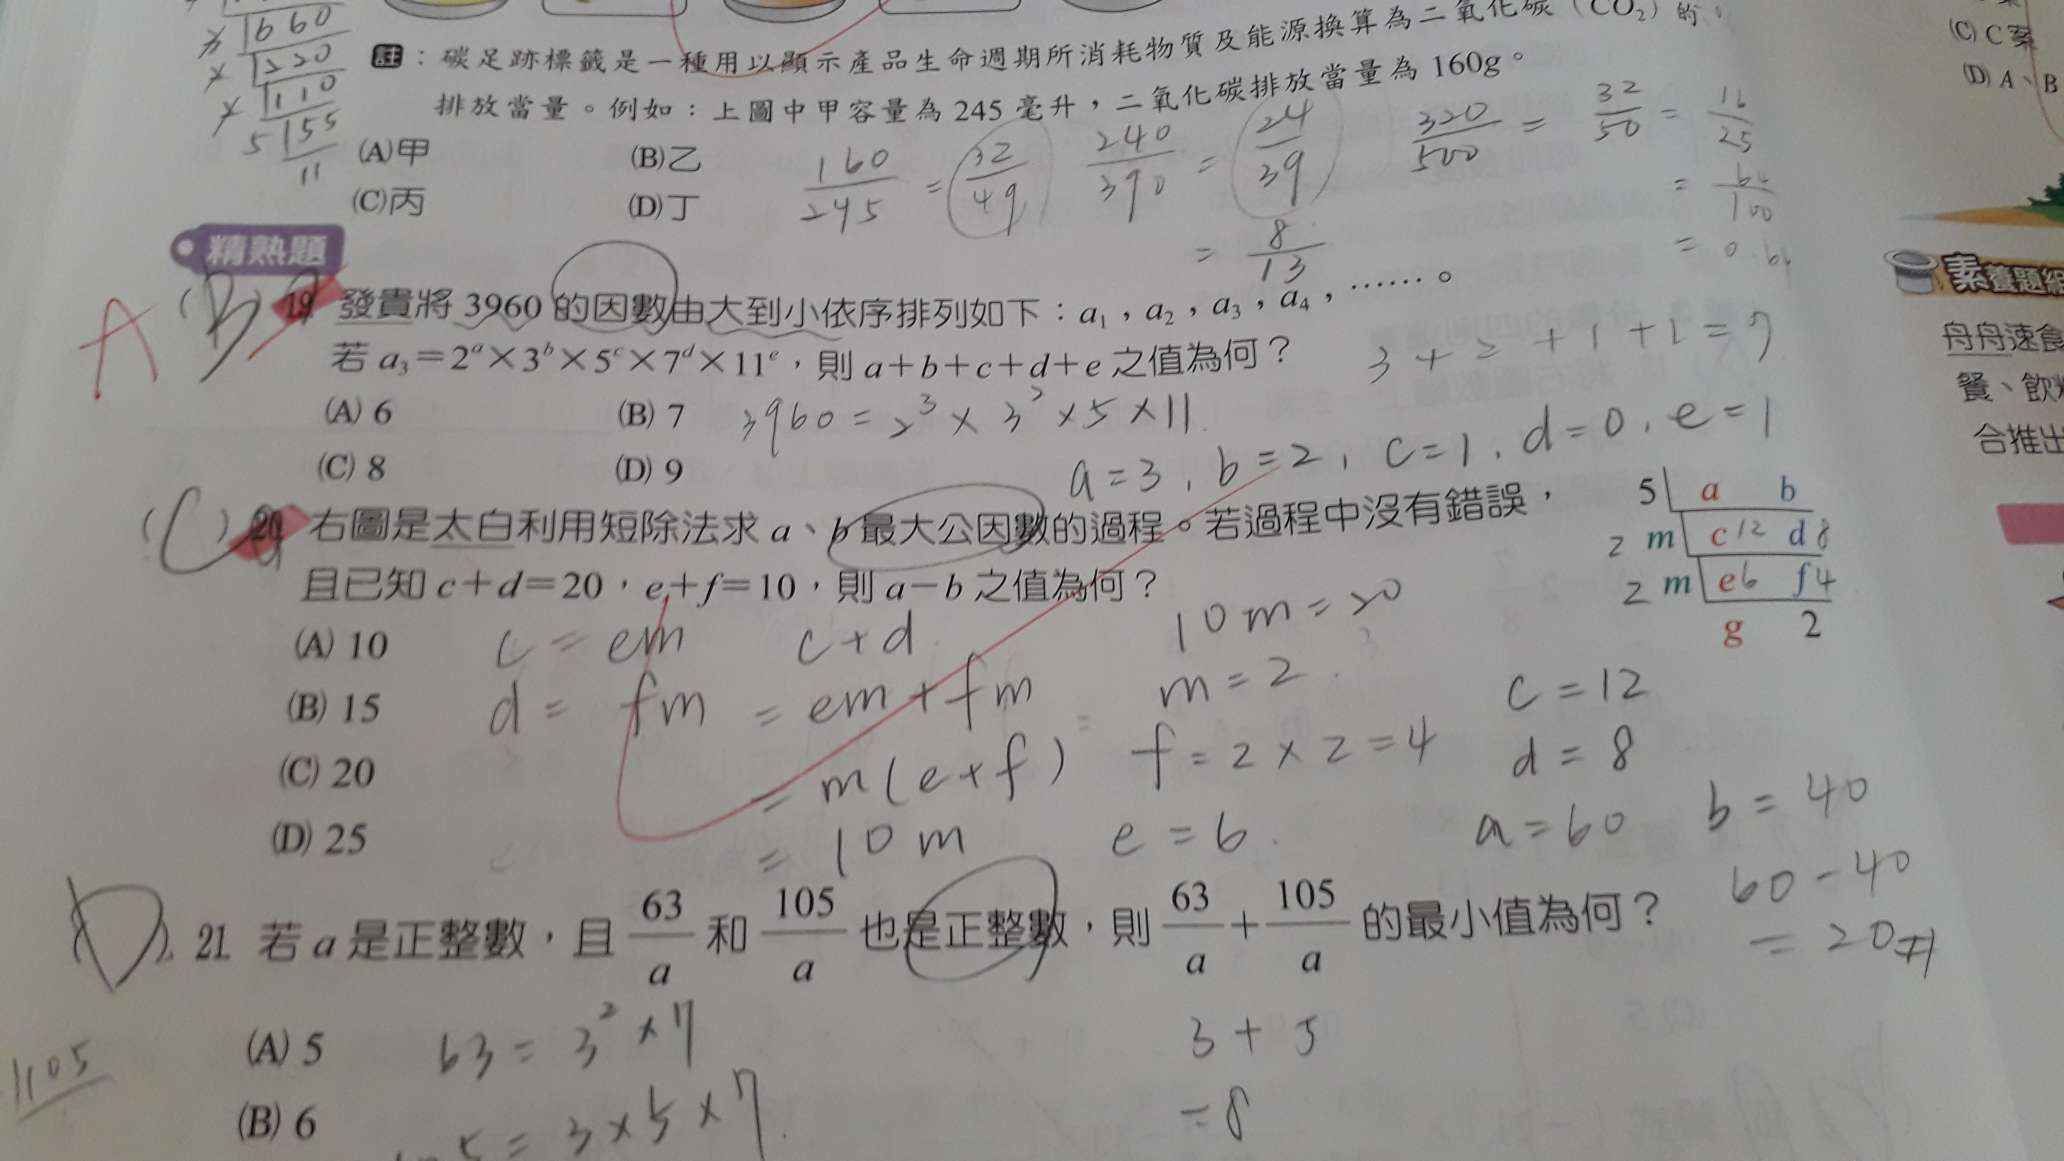 1660
220
110
5 55
11
註：碳足跡標籤是一種用以顯示產品生命週期所消耗物質及能源換算為二氧化碳（CO₂）的
排放當量。例如：上圖中甲容量為 245 毫升，二氧化碳排放當量為 160g。
(A)甲 (B)乙
(C)丙 (D)丁
160/245 = 32/49
240/390 = 24/39
= 8/13
320/500 = 32/50 = 16/25
= 64/100
(C) C案
(D) A、B
精熟題
A (B) 19. 發貴將 3960 的因數由大到小依序排列如下：a₁，a₂，a₃，a₄，……。
若 a₃＝2ᵃ×3ᵇ×5ᶜ×7ᵈ×11ᵉ，則 a＋b＋c＋d＋e 之值為何？
3+2+1+1=7
(A) 6 (B) 7
(C) 8 (D) 9
3960 = 2³ × 3² × 5 × 11
a=3, b=2, c=1, d=0, e=1
(C) 20. 右圖是太白利用短除法求 a、b 最大公因數的過程。若過程中沒有錯誤，
且已知 c＋d＝20，e＋f＝10，則 a－b 之值為何？
5 a b
2 m c 12 d 8
2 m e 6 f 4
g 2
(A) 10
(B) 15
(C) 20
(D) 25
c = em
d = fm
c+d
= em+fm
= m(e+f)
= 10m
10m=20
m=2
f=2×2=4
e=6
c=12
d=8
a=60 b=40
60-40
=20#
(D) 21. 若 a 是正整數，且 63/a 和 105/a 也是正整數，則 63/a＋105/a 的最小值為何？
(A) 5
(B) 6
63 = 3² × 7
5 = 3×5×7
3+5
=8
105
素養題組
舟舟速食
餐、飲料
合推出